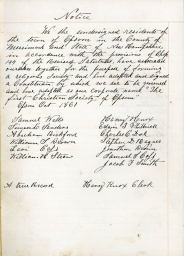 Notice
We the undersigned residents of
the town of Epsom in the County of
Merrimack and State of New Hampshire
in accordance with the provisions of Chap
140 of the Revised Statutes, have associated
ourselves together for the purpose of forming
a religious society and have adopted and signed
a Constitution by which we are to be governed
and have adopted as our corporate name "The
first Christian Society of Epsom"
Epsom Oct 1861
Samuel Wells
Henry Knox
Benjamin
Edwin
Abraham Bickford
Charles
William
Stephen
Levi Cass
Jonathan
William H
Samuel
Jacob F Smith
A true Record
Henry Knox Clerk